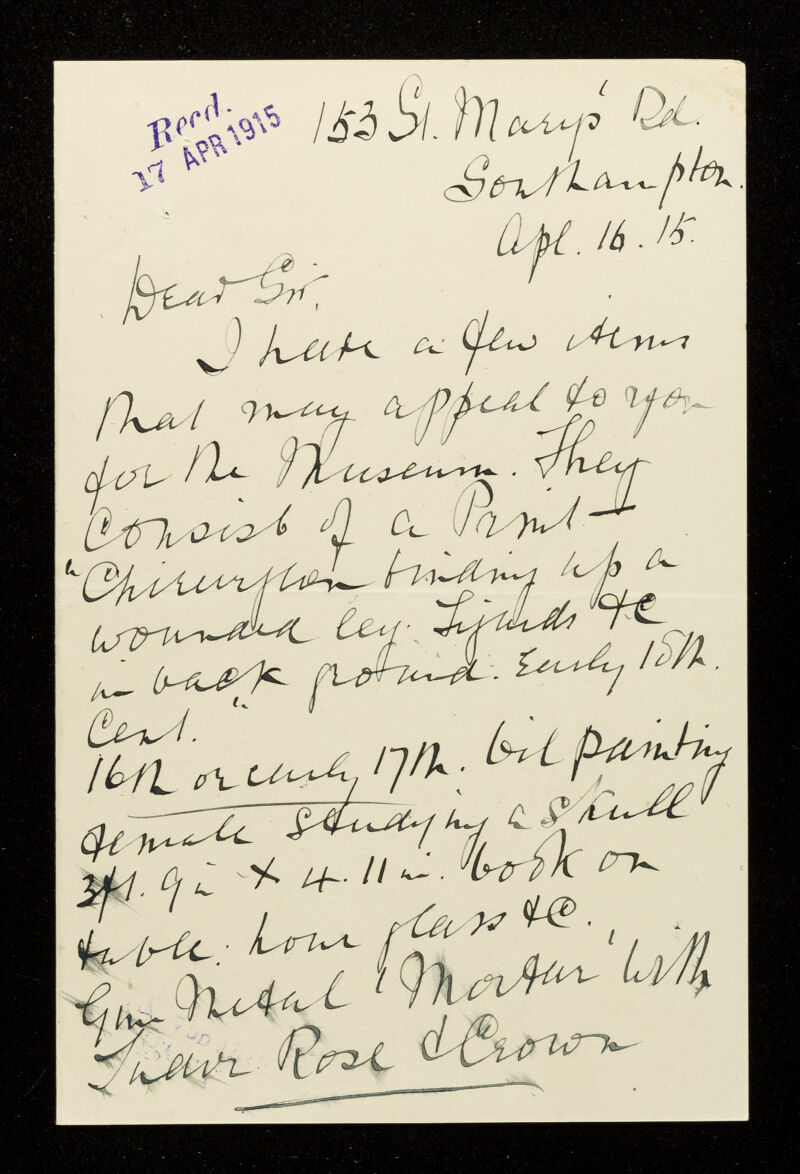 Recd.
17 APR 1915
153 St. Mary's Rd.
Southampton.
Apl. 16. 15.
Dear Sir,
I have a few items
that may appeal to you
for the Museum. They
consist of a Print –
"Chirurgion binding up a
wounded leg. Lizards &c
in back ground. Early 18th.
Cent."
16th or early 17th. Oil painting
female studying a skull
3ft. 9in x 4. 11 in. book on
table. hour glass &c.
Gun Metal 'Mortar' with
Tudor Rose & Crown